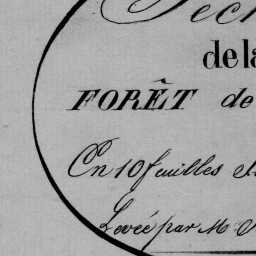 de la
FORÊT de
En 10 feuilles et
Levée par M.